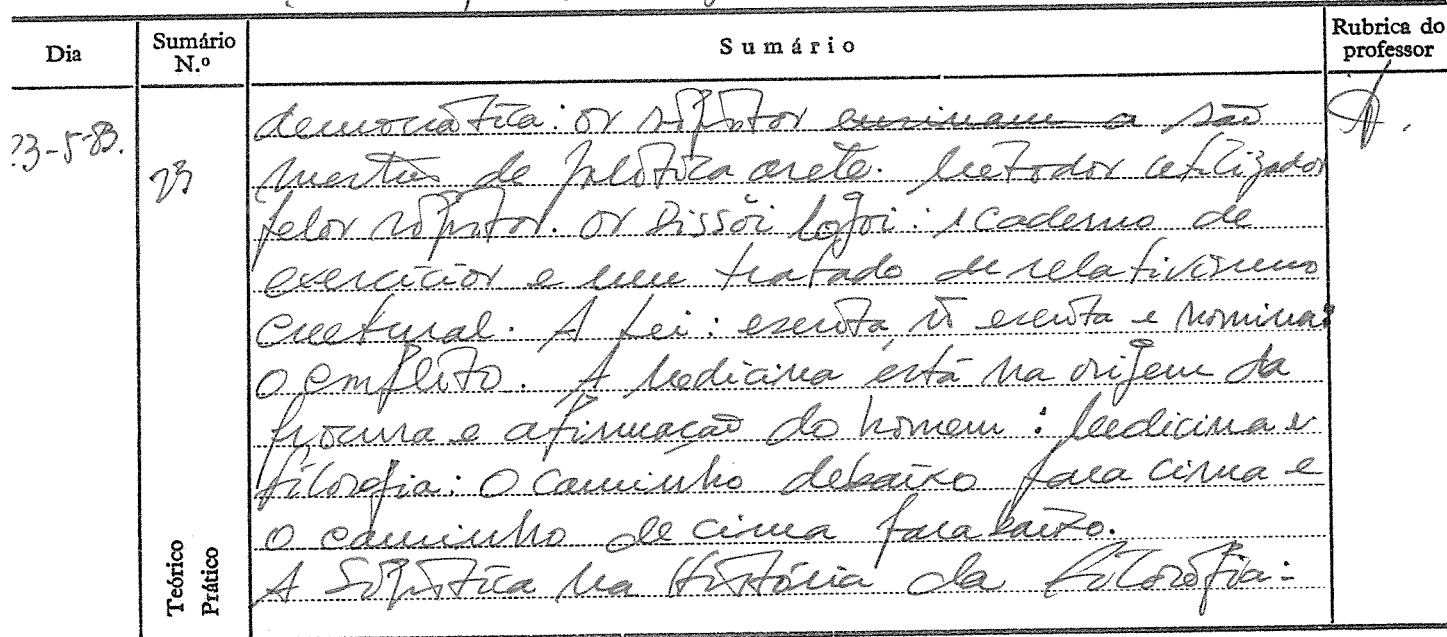 Dia Sumário N.º Sumário Rubrica do professor
democrática: os sofistas ensinam a são
23-5-83. 23 mestres de política arete. Metodos utilizados
pelos sofistas. os Dissoi logoi: 1 caderno de
exercícios e um tratado de relativismo
cultural. A lei: escrita ñ escrita e
o conflito. A Medicina está na origem da
procura e afirmação do homem: Medicina e
filosofia: O caminho debaixo para cima e
o caminho de cima para baixo.
A Sofística na História da filosofia:
Teórico
Prático